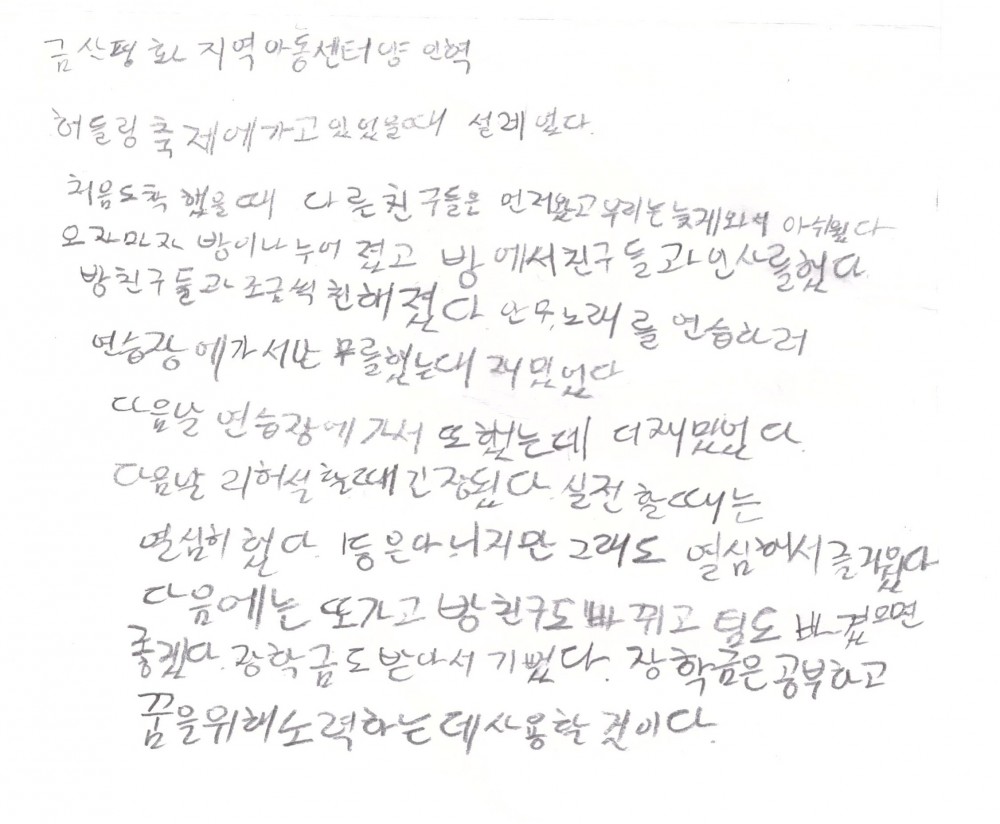 금산평화 지역아동센터 양인혁
허들링축제에가고있었을때 설레었다.
처음도착 했을때 다른친구들은 먼저왔고 우리는늦게와서 아쉬웠다
오자마자 방이나누어 졌고 방에서친구들과인사를했다.
방친구들과조금씩친해졌다 안무,노래를 연습하러
연습장에가서안무를했는대 재밌었다
다음날 연습장에가서 또했는데 더재밌었다.
다음날 리허설할때긴장됬다. 실전할때는
열심히 했다. 1등은아니지만 그래도 열심해서즐거웠다
다음에는 또가고 방친구도빠뀌고 팀도 빠겼으면
좋겠다. 장학금도받아서기뻤다. 장학금은공부하고
꿈을위해노력하는데사용할것이다.